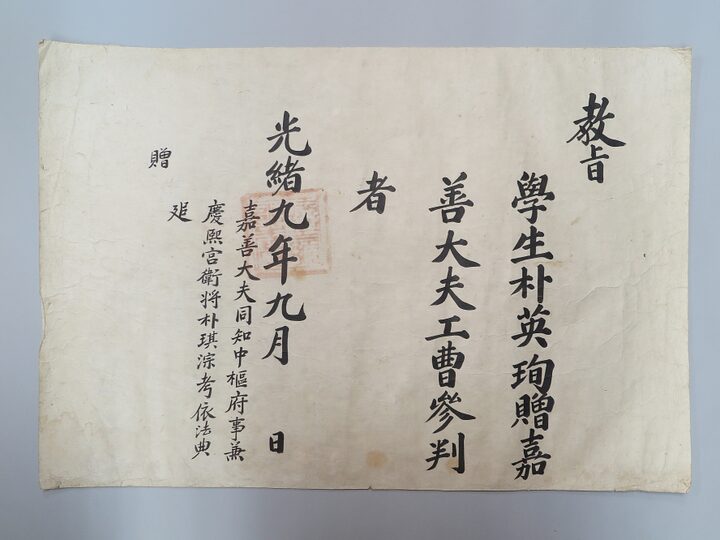 教旨
學生朴英珣贈嘉
善大夫工曹參判
者
光緒九年九月　日
嘉善大夫同知中樞府事兼
慶熙宮衛將朴琪淙考依法典
追
贈